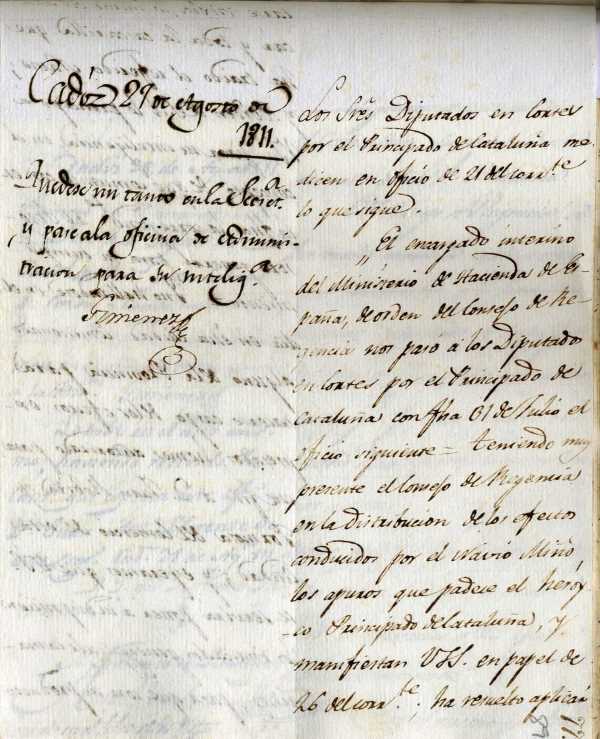 Cadiz 29 de Agosto de
1811.
Quedese un tanto en la Secret.ª
y pase ala oficina de Adminis-
tracion para su intelig.ª
Gimenez
Los Sres Diputados en Cortes
por el Principado de Cataluña me
dicen en oficio de 21 del corr.te
lo que sigue.
„ El encargado interino
del Ministerio de Hacienda de Es-
paña, de orden del Consejo de Re-
gencia nos paso a los Diputados
en Cortes por el Principado de
Cataluña con fha 31 de Julio el
oficio siguiente = Teniendo muy
presente el Consejo de Regencia
en la distribucion de los efectos
conducidos por el Navio Miño,
los apuros que padece el heroy-
co Principado de Cataluña, y
manifiestan VSS. en papel de
26 del corr.te, ha resuelto aplicar